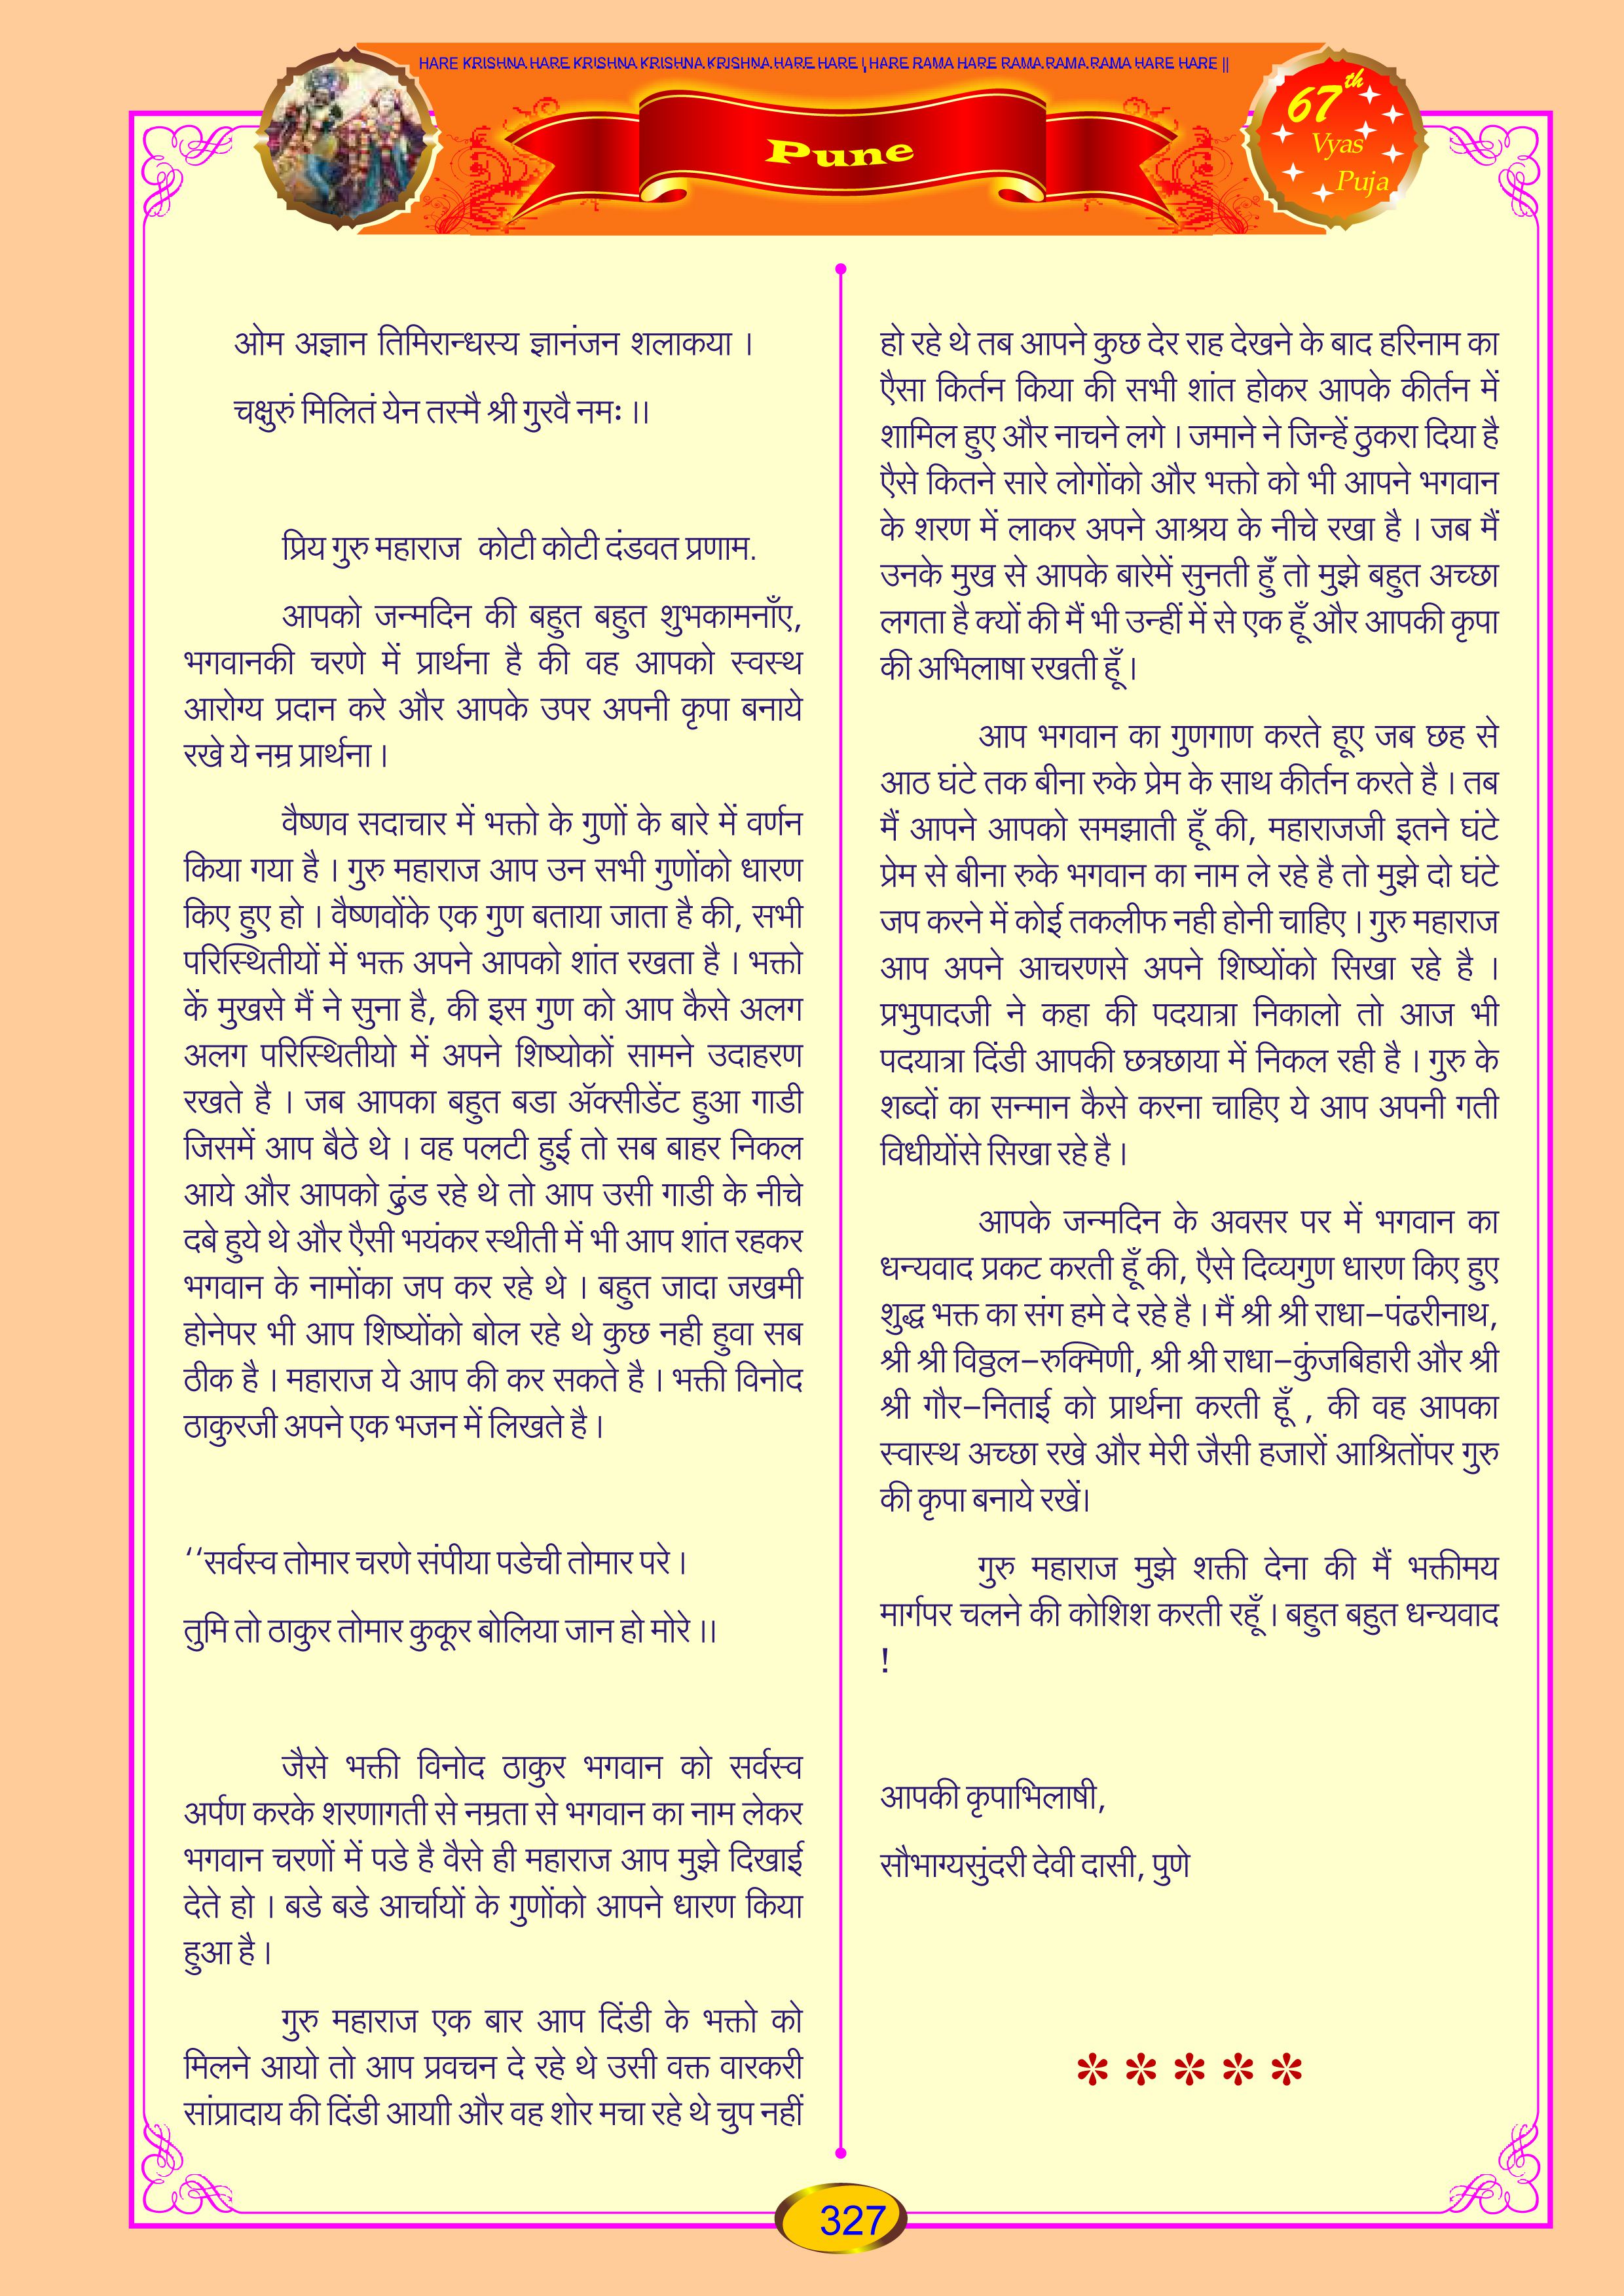 HARE KRISHNA HARE KRISHNA KRISHNA KRISHNA HARE HARE | HARE RAMA HARE RAMA RAMA RAMA HARE HARE ||
Pune
67th
Vyas
Puja
ओम अज्ञान तिमिरान्धस्य ज्ञानंजन शलाकया ।
चक्षुरुं मिलितं येन तस्मै श्री गुरवै नमः ।।
प्रिय गुरु महाराज  कोटी कोटी दंडवत प्रणाम.
आपको जन्मदिन की बहुत बहुत शुभकामनाँए,
भगवानकी चरणे में प्रार्थना है की वह आपको स्वस्थ
आरोग्य प्रदान करे और आपके उपर अपनी कृपा बनाये
रखे ये नम्र प्रार्थना ।
वैष्णव सदाचार में भक्तो के गुणों के बारे में वर्णन
किया गया है । गुरु महाराज आप उन सभी गुणोंको धारण
किए हुए हो । वैष्णवोंके एक गुण बताया जाता है की, सभी
परिस्थितीयों में भक्त अपने आपको शांत रखता है । भक्तो
कें मुखसे मैं ने सुना है, की इस गुण को आप कैसे अलग
अलग परिस्थितीयो में अपने शिष्योकों सामने उदाहरण
रखते है । जब आपका बहुत बडा ॲक्सीडेंट हुआ गाडी
जिसमें आप बैठे थे । वह पलटी हुई तो सब बाहर निकल
आये और आपको ढुंड रहे थे तो आप उसी गाडी के नीचे
दबे हुये थे और एैसी भयंकर स्थीती में भी आप शांत रहकर
भगवान के नामोंका जप कर रहे थे । बहुत जादा जखमी
होनेपर भी आप शिष्योंको बोल रहे थे कुछ नही हुवा सब
ठीक है । महाराज ये आप की कर सकते है । भक्ती विनोद
ठाकुरजी अपने एक भजन में लिखते है ।
‘‘सर्वस्व तोमार चरणे संपीया पडेची तोमार परे ।
तुमि तो ठाकुर तोमार कुकूर बोलिया जान हो मोरे ।।
जैसे भक्ती विनोद ठाकुर भगवान को सर्वस्व
अर्पण करके शरणागती से नम्रता से भगवान का नाम लेकर
भगवान चरणों में पडे है वैसे ही महाराज आप मुझे दिखाई
देते हो । बडे बडे आर्चायों के गुणोंको आपने धारण किया
हुआ है ।
गुरु महाराज एक बार आप दिंडी के भक्तो को
मिलने आयो तो आप प्रवचन दे रहे थे उसी वक्त वारकरी
सांप्रादाय की दिंडी आयाी और वह शोर मचा रहे थे चुप नहीं
हो रहे थे तब आपने कुछ देर राह देखने के बाद हरिनाम का
एैसा किर्तन किया की सभी शांत होकर आपके कीर्तन में
शामिल हुए और नाचने लगे । जमाने ने जिन्हें ठुकरा दिया है
एैसे कितने सारे लोगोंको और भक्तो को भी आपने भगवान
के शरण में लाकर अपने आश्रय के नीचे रखा है । जब मैं
उनके मुख से आपके बारेमें सुनती हुँ तो मुझे बहुत अच्छा
लगता है क्यों की मैं भी उन्हीं में से एक हूँ और आपकी कृपा
की अभिलाषा रखती हूँ ।
आप भगवान का गुणगाण करते हूए जब छह से
आठ घंटे तक बीना रुके प्रेम के साथ कीर्तन करते है । तब
मैं आपने आपको समझाती हूँ की, महाराजजी इतने घंटे
प्रेम से बीना रुके भगवान का नाम ले रहे है तो मुझे दो घंटे
जप करने में कोई तकलीफ नही होनी चाहिए । गुरु महाराज
आप अपने आचरणसे अपने शिष्योंको सिखा रहे है ।
प्रभुपादजी ने कहा की पदयात्रा निकालो तो आज भी
पदयात्रा दिंडी आपकी छत्रछाया में निकल रही है । गुरु के
शब्दों का सन्मान कैसे करना चाहिए ये आप अपनी गती
विधीयोंसे सिखा रहे है ।
आपके जन्मदिन के अवसर पर में भगवान का
धन्यवाद प्रकट करती हूँ की, एैसे दिव्यगुण धारण किए हुए
शुद्ध भक्त का संग हमे दे रहे है । मैं श्री श्री राधा–पंढरीनाथ,
श्री श्री विठ्ठल–रुक्मिणी, श्री श्री राधा–कुंजबिहारी और श्री
श्री गौर–निताई को प्रार्थना करती हूँ , की वह आपका
स्वास्थ अच्छा रखे और मेरी जैसी हजारों आश्रितोंपर गुरु
की कृपा बनाये रखें।
गुरु महाराज मुझे शक्ती देना की मैं भक्तीमय
मार्गपर चलने की कोशिश करती रहूँ । बहुत बहुत धन्यवाद
!
आपकी कृपाभिलाषी,
सौभाग्यसुंदरी देवी दासी, पुणे
327